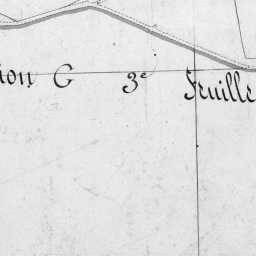 ion C 3e Feuille